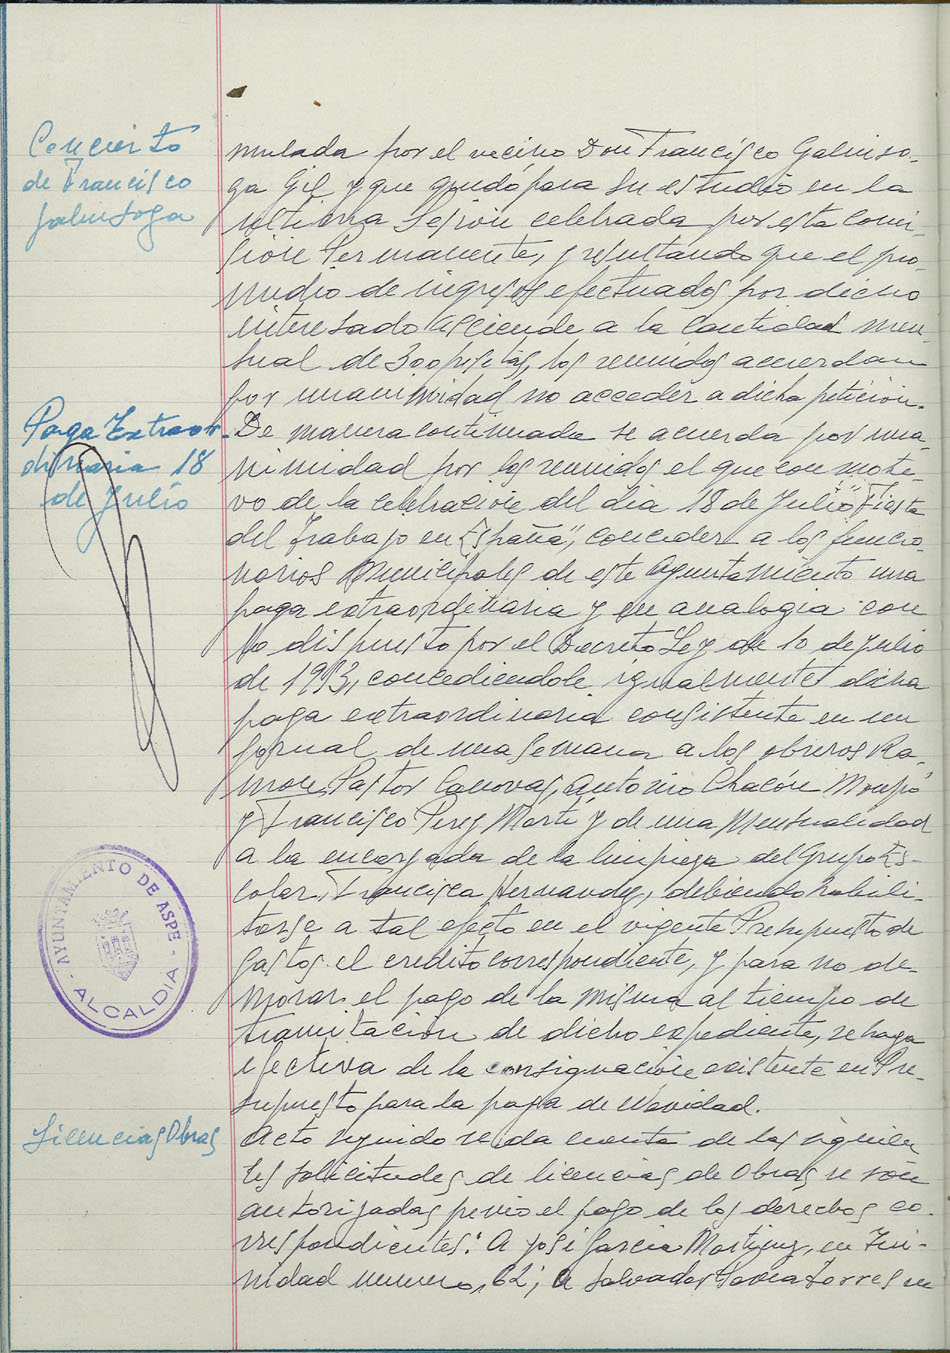 Concierto
de Francisco
Galinsoga
mulada por el vecino Don Francisco Galinso-
ga Gil y que quedó para su estudio en la
ultima Sesion celebrada por esta Comi-
sion Permanente, y resultando que el pro-
medio de ingresos efectuados por dicho
interesado asciende a la Cantidad men-
sual de 300 pesetas, los reunidos acuerdan
por unanimidad no acceder a dicha petición.
Paga Extraor-
dinaria 18
de Julio
De manera continuada se acuerda por una-
nimidad por los reunidos el que con moti-
vo de la celebracion del dia 18 de Julio "Fiesta
del Trabajo en España", conceder a los funcio-
narios Municipales de este Ayuntamiento una
paga extraordinaria y en analogia con
lo dispuesto por el Decreto Ley de 10 de Julio
de concediendole igualmente dicha
paga extraordinaria consistente en un
jornal de una semana a los obreros Ra-
mon Pastor Canovas, Antonio Chacón Mompó
y Francisco Perez Martí y de una Mensualidad
a la encargada de la limpieza del Grupo Es-
colar, Francisca Hernandez, debiendo habili-
tarse a tal efecto en el vigente Presupuesto de
Gastos el credito correspondiente, y para no de-
morar el pago de la misma al tiempo de
tramitacion de dicho expediente, se haga
efectiva de la consignación existente en Pre-
supuesto para la paga de Navidad.
AYUNTAMIENTO DE ASPE
- ALCALDIA -
Licencias Obras
Acto seguido se da cuenta de las siguien
tes solicitudes de licencias de Obras se son
autorizadas previo el pago de los derechos co-
rrespondientes: A José Garcia Martinez, en Tri-
nidad numero, 62; a Salvador Torres en